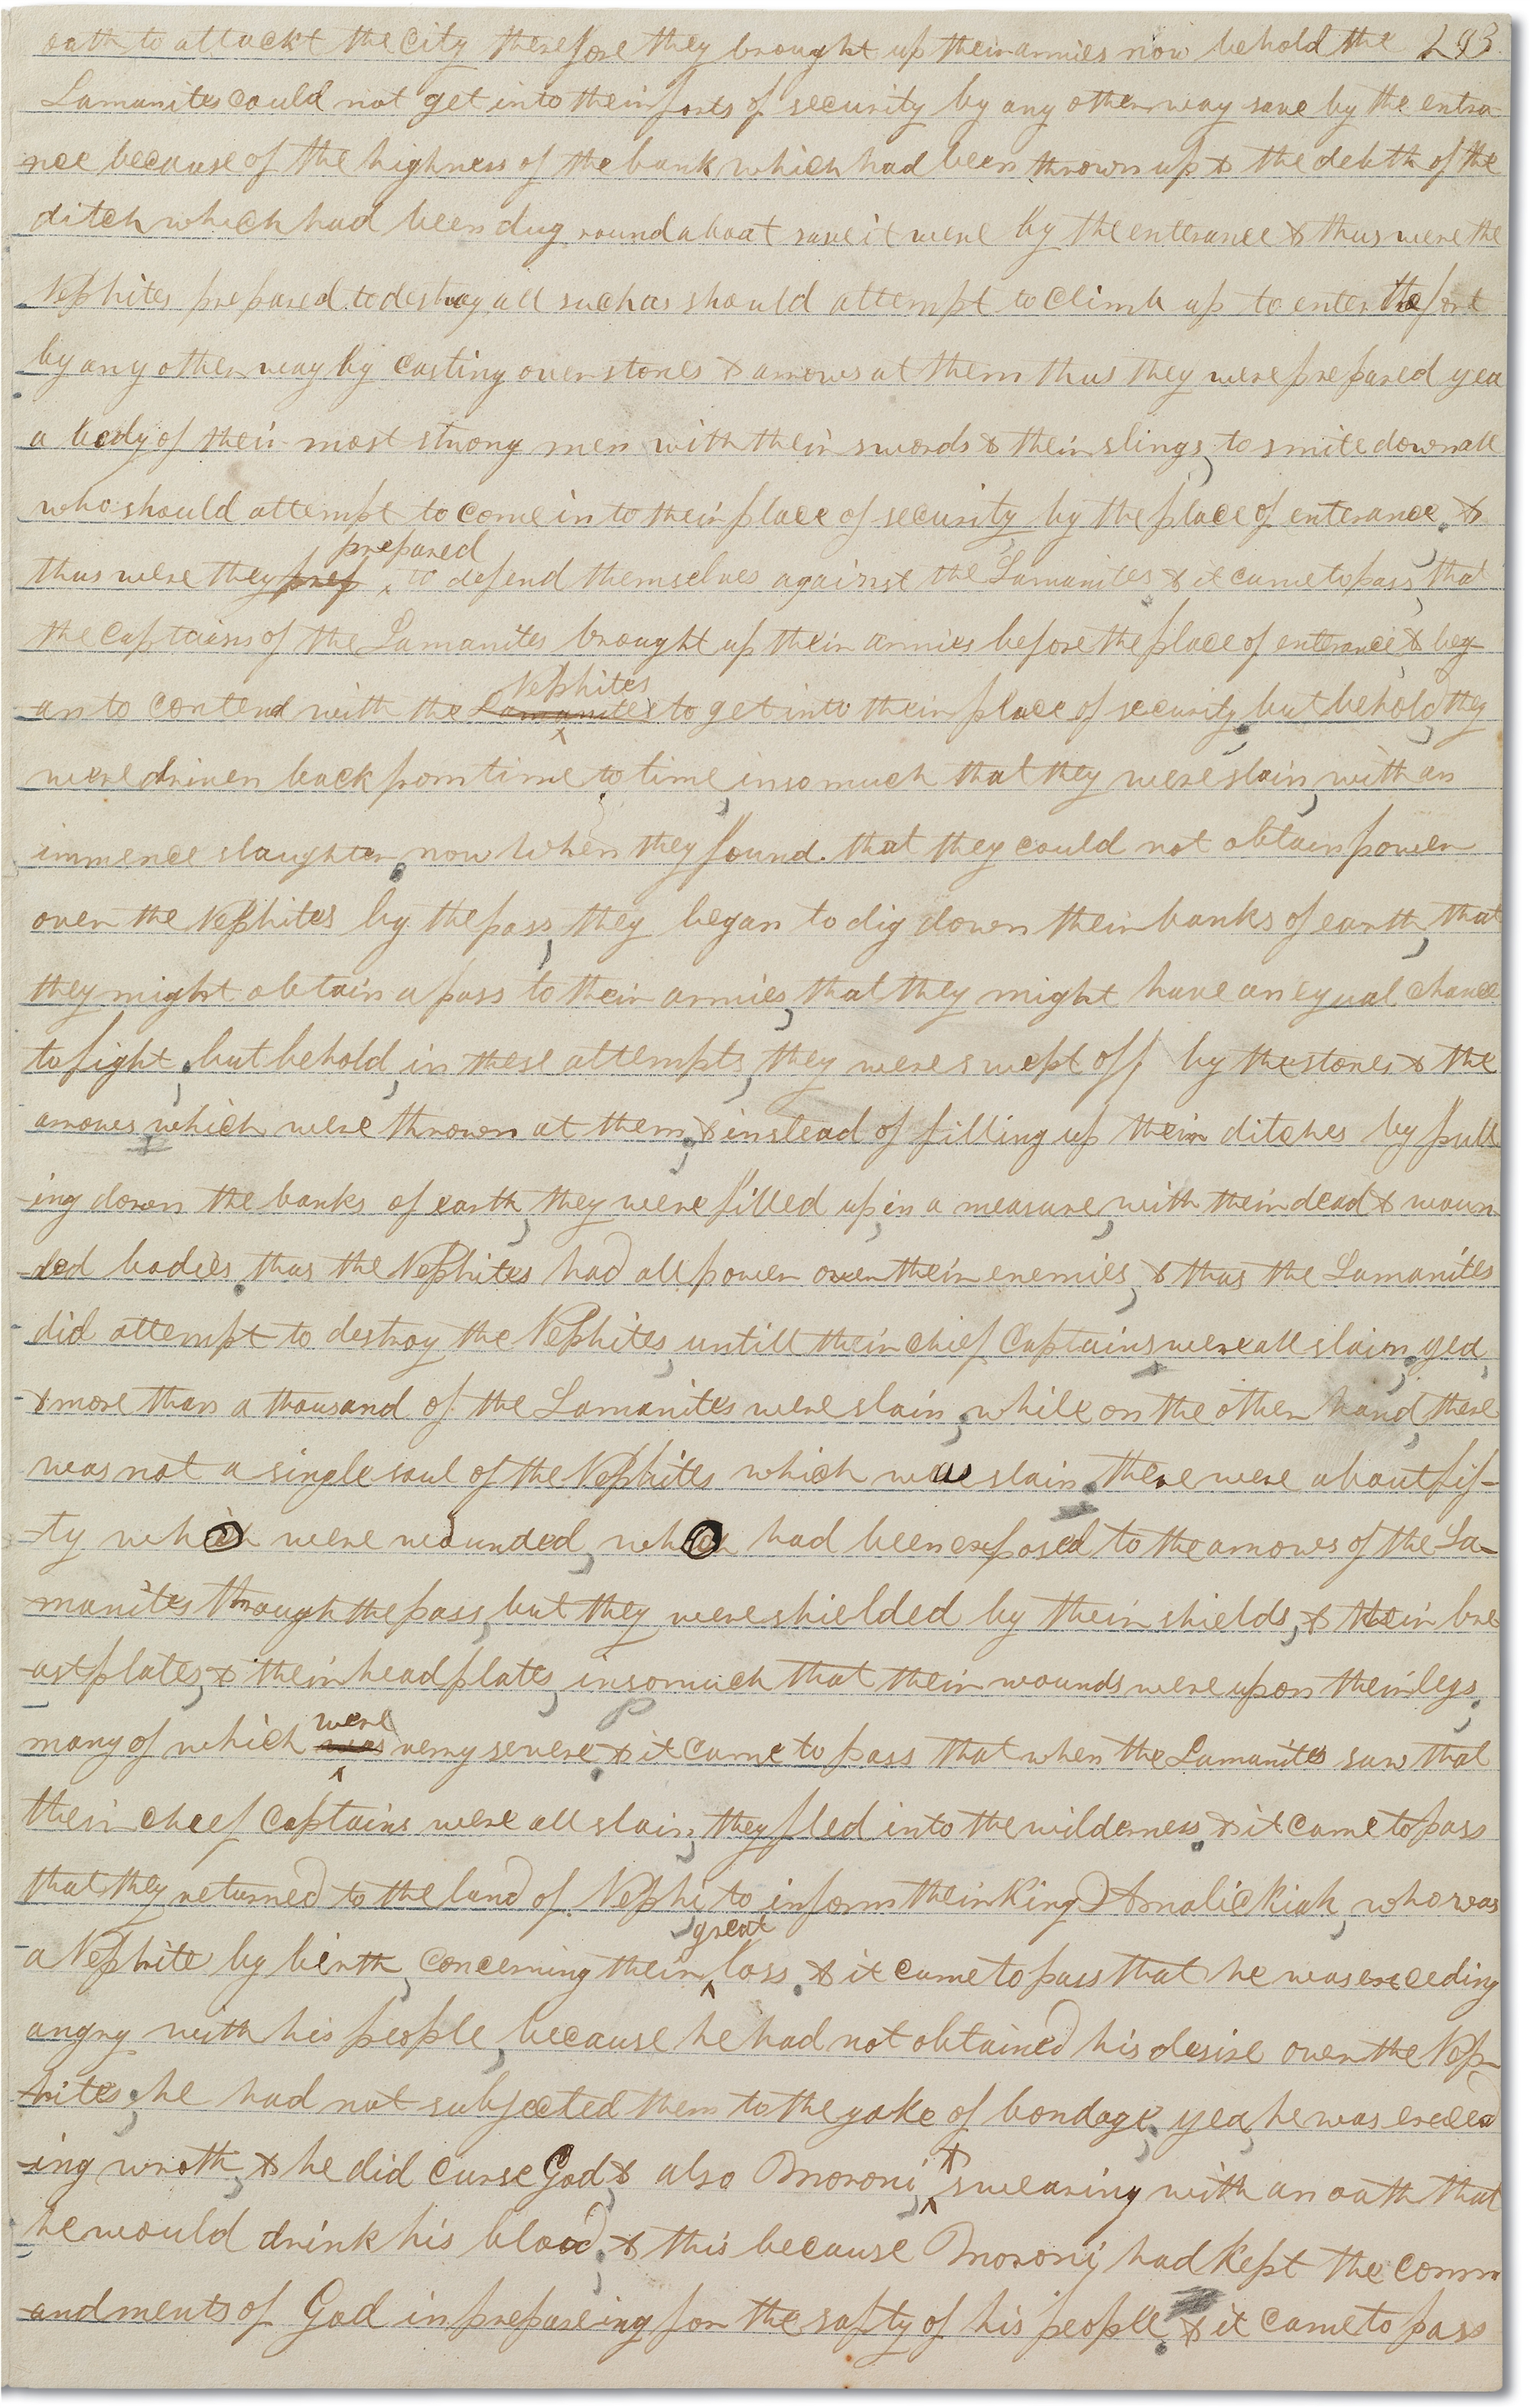 oath to attackt the city therefore they brought up their armies now behold the 293
Lamanites could not get into their forts of security by any other way save by the entra
nce because of the highness of the bank which had been thrown up & the debth of the
ditch which had been dug round about save it were by the enterance & thus were the
Nephites prepared to destroy all such as should attempt to climb up to enter the fort
by any other way by casting over stones & arrows at them thus they were prepared yea
a body of their most strong men with their swords & their slings, to smite down all
who should attempt to come in to their place of security by the place of enterance, &
prepared
thus were they pref ^ to defend themselves against the Lamanites & it came to pass, that
the captains of the Lamanites brought up their armies before the place of enterance, & beg
Nephites
an to contend with the Lamanites ^ to get into their place of security, but behold, they
were driven back from time to time, insomuch that they were slain, with an
immence slaughter. now when they found. that they could not obtain power
over the Nephites by the pass, they began to dig down their banks of earth, that
they might obtain a pass to their armies, that they might have an equal chance
to fight, but behold, in these attempts, they were swept off by the stones & the
arrows which were thrown at them; & instead of filling up their ditches by pull
-ing down the banks of earth, they were filled up, in a measure, with their dead & woun
-ded bodies. thus the Nephites had all power over their enemies, & thus the Lamanites
did attempt to destroy the Nephites, untill their chief Captains were all slain, yea,
& more than a thousand of the Lamanites were slain; while on the other hand, there
was not a single soul of the Nephites which was slain. there were about fif-
-ty who were wounded, who had been exposed to the arrows of the La-
-manites through the pass, but they were shielded by their shields, & their bre
-astplates, & their headplates, insomuch that their wounds were upon their legs,
were
many of which was ^ verry severe. & it came to pass that when the Lamanites saw that
their cheef Captains were all slain, they fled into the wilderness. & it came to pass
that they returned to the land of Nephi, to inform their King Amalickiah, who was
great
a Nephite by birth, concerning their ^ loss. & it came to pass that he was exceeding
angry with his people, because he had not obtained his desire over the Nep-
-hites; he had not subjected them to the yoke of bondage, yea, he was exceed
-ing wroth, & he did curse God, & also Moroni, ^ swearing with an oath that
he would drink his blood, & this because Moroni, had kept the comm
-andments of God in prepareing for the safty of his people. & it came to pass